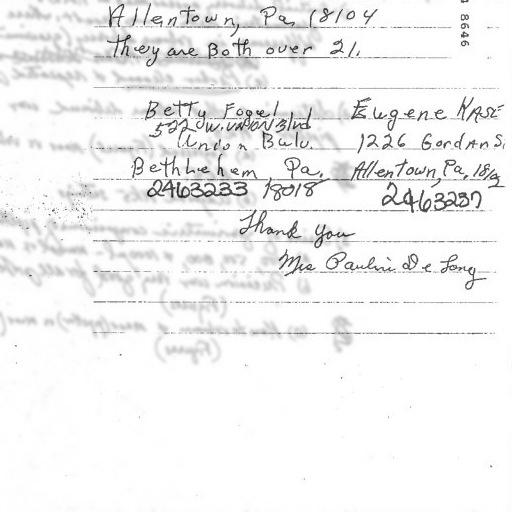 Allentown, Pa, 18104
8646
they are Both over 21.
Betty Fogel
522 W. UNION Blvd
Union Bulv.
Bethlehem, Pa.
2463233 18018
Eugene KASE
1226 Gordan S
Allentown, Pa,
2463237
Thank You
Mrs Pauline De Long